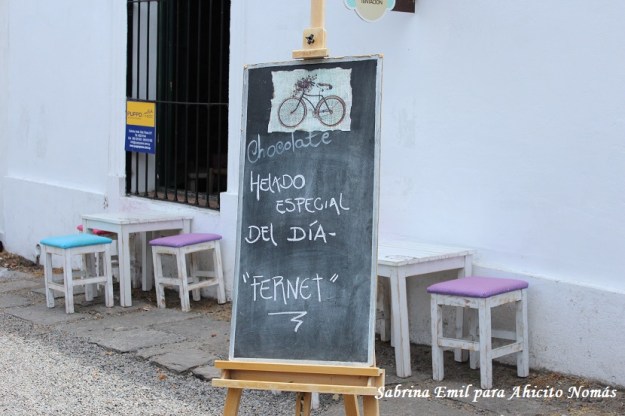 TENTACIÓN
Chocolate
HELADO
ESPECIAL
DEL DÍA-
"FERNET"
Sabrina Emil para Ahicito Nomás